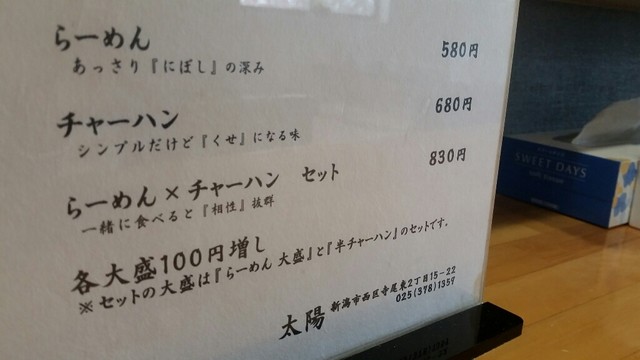 らーめん 580円
あっさり『にぼし』の深み
チャーハン 680円
シンプルだけど『くせ』になる味
らーめん×チャーハン セット 830円
一緒に食べると『相性』抜群
各大盛100円増し
※セットの大盛は『らーめん 大盛』と『半チャーハン』のセットです。
太陽 新潟市西区寺尾東2丁目15-22
025(378)1357
SWEET DAYS